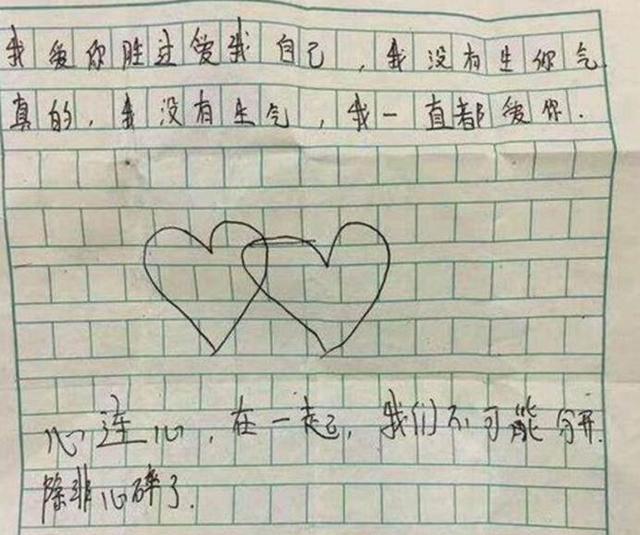 我爱你胜过爱我自己，我没有生你气
真的，我没有生气，我一直都爱你.
心连心，在一起，我们不可能分开.
除非心碎了.